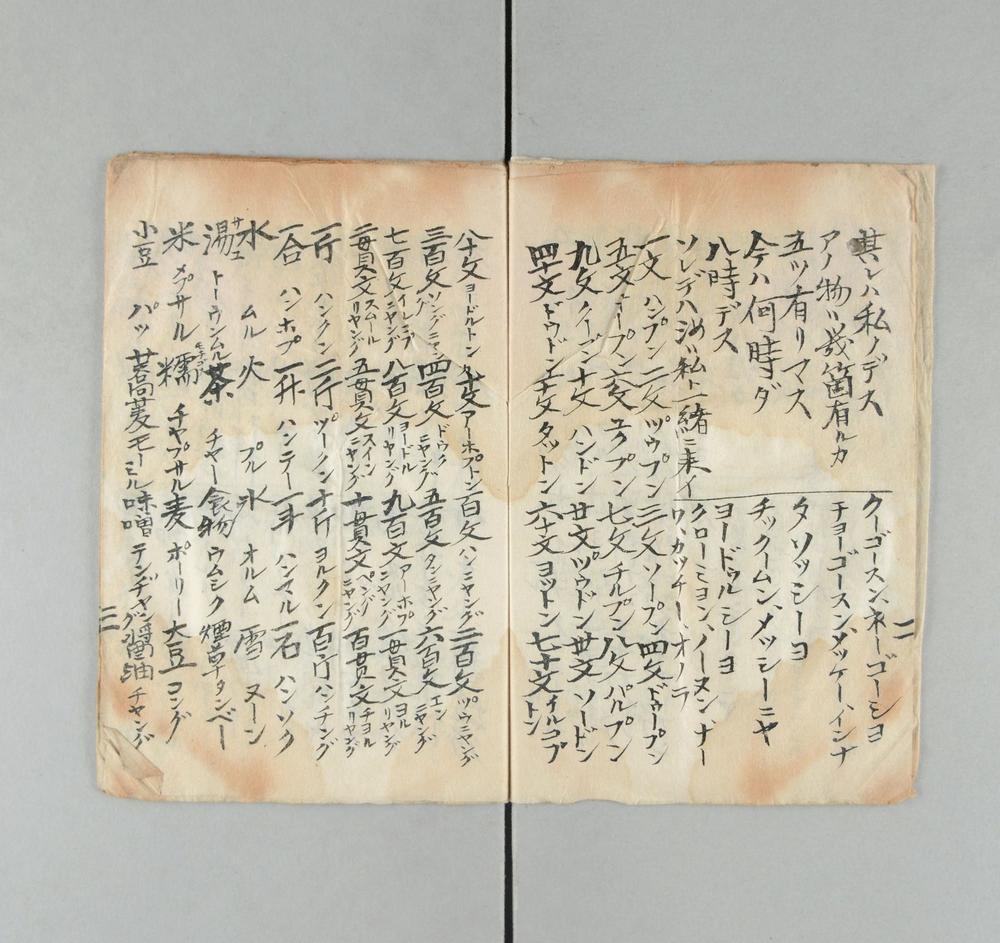 其レハ私ノデス
クーゴースン、ネーゴーショ
アノ物ハ幾箇有ルカ
チョーゴースン、メッケーハインナ
五ツ有リマス
タソッシーヨ
今ハ何時ダ
チックイムン、メッシーニヤ
八時デス
ヨードゥルシーヨ
ソレデハ汝ハ私ト一緒ニ来イ
クローミョン、ノーヌンナー
ワ、カッチー、オノラ
一文 ハンプン 二文 ツウプン 三文 ソープン 四文 ドゥープン
五文 オープン 六文 ユクプン 七文 チルプン 八文 パルプン
九文 クープン 十文 ハンドン 廿文 ツウドン 卅文 ソードン
四十文 ドウドン 五十文 タットン 六十文 ヨットン 七十文 チルコプトン
二
八十文 ヨードルトン 九十文 アーホプトン 百文 ハンニャング 二百文 ツウニャング
三百文 ソングニャング 四百文 ドウクニャング 五百文 タンニャング 六百文 エンニャング
七百文 イルコプニャング 八百文 ヨードルリヤング 九百文 アーホプニャング 一貫文 ヨルリヤング
二貫文 スムールリヤング 五貫文 スインニャング 十貫文 ペングニャング 百貫文 チヨルリヤング
一斤 ハンクン 二斤 ヅーノン 十斤 ヨルクン 百斤 ハンチング
一合 ハンホプ 一升 ハンニデー 一斗 ハンマル 一石 ハンソク
水 ムル 火 プル 氷 オルム 雪 ヌーン
湯 サユ トーウンムル 茶 チャー 食物 ウムシク 煙草 タンベー
米 メプサル 糯 モチゴメ チャプサル 麦 ポーリー 大豆 コング
小豆 パッ 蕎麦 モーミル 味噌 テンヂャング 醤油 チャング
三